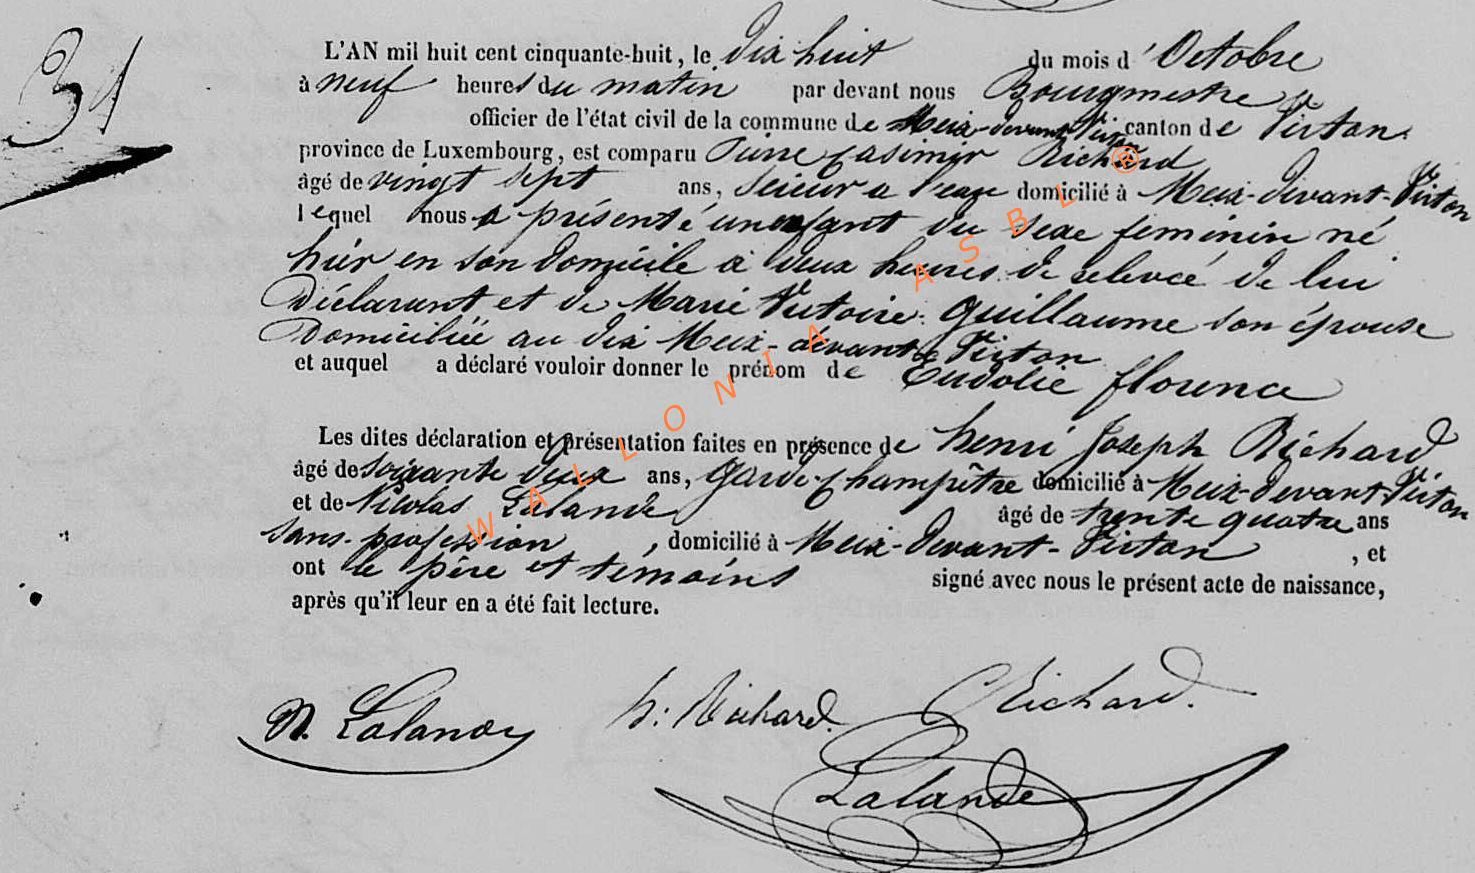 31
L'AN mil huit cent cinquante-huit, le dix huit du mois d'Octobre
à neuf heures du matin par devant nous Bourgmestre
officier de l'état civil de la commune de Meix-devant Virton canton de Virton
province de Luxembourg, est comparu Pierre Casimir Richard
âgé de vingt sept ans, scieur a l'eau domicilié à Meix-devant-Virton
lequel nous a présenté un enfant du sexe feminin né
hier en son domicile a deux heures de relevée de lui
Déclarant et de Marie Victoire Guillaume son épouse
Domiciliée au dix Meix-devant Virton
et auquel a déclaré vouloir donner le prénom de Eudolie florence
Les dites déclaration et présentation faites en présence de henri Joseph Richard
âgé de soixante deux ans, garde-champêtre domicilié à Meix-devant Virton
et de Nicolas Lalande âgé de trente quatre ans
sans profession, domicilié à Meix-Devant-Virton, et
ont le père et témoins signé avec nous le présent acte de naissance,
après qu'il leur en a été fait lecture.
N. Lalande h: Richard CRichard.
Lalande
WALLONIA ASBL ®